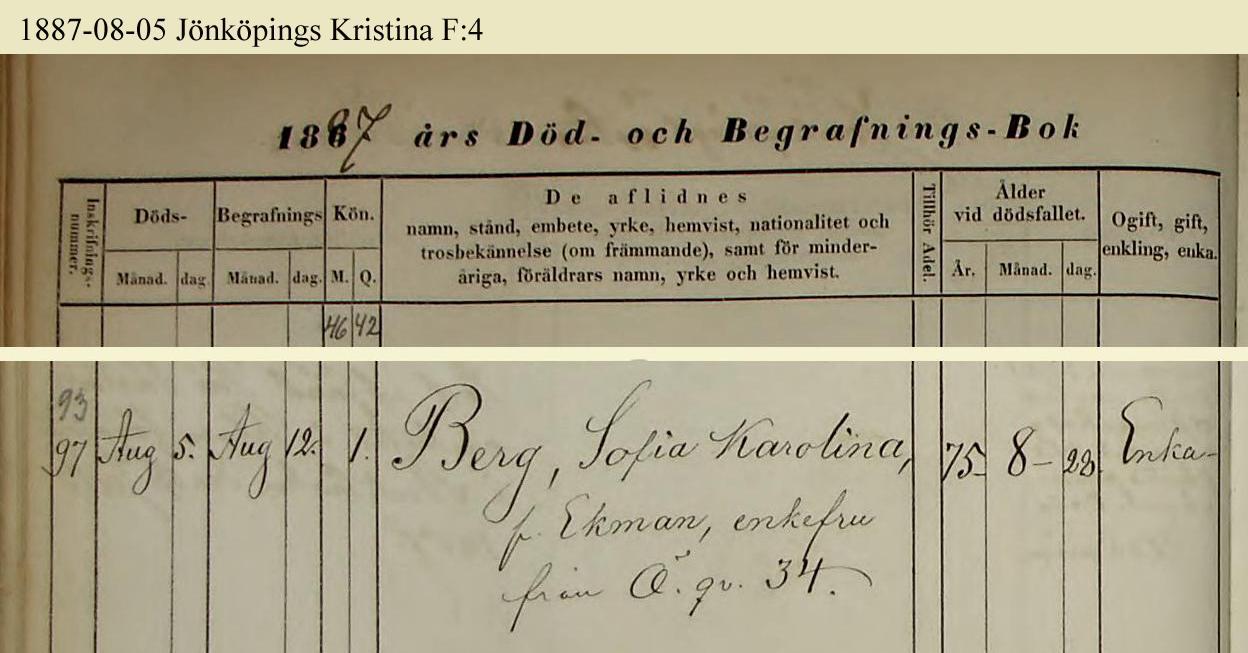 1887-08-05 Jönköpings Kristina F:4
1887 års Död- och Begrafnings-Bok
Inskrifnings-nummer.
Döds-
Månad. dag.
Begrafnings
Månad. dag.
Kön.
M. Q.
De aflidnes
namn, stånd, embete, yrke, hemvist, nationalitet och
trosbekännelse (om främmande), samt för minder-
åriga, föräldrars namn, yrke och hemvist.
Tillhör Adel.
Ålder
vid dödsfallet.
År. Månad. dag.
Ogift, gift,
enkling, enka.
46 42
93
97 Aug 5. Aug 12. 1. Berg, Sofia Karolina, 75 8 28 Enka
f. Ekman, enkefru
från Ö. qv. 34.